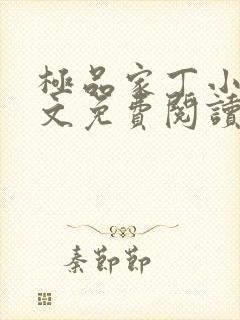 極品家丁小
文免費閱讀
秦節節